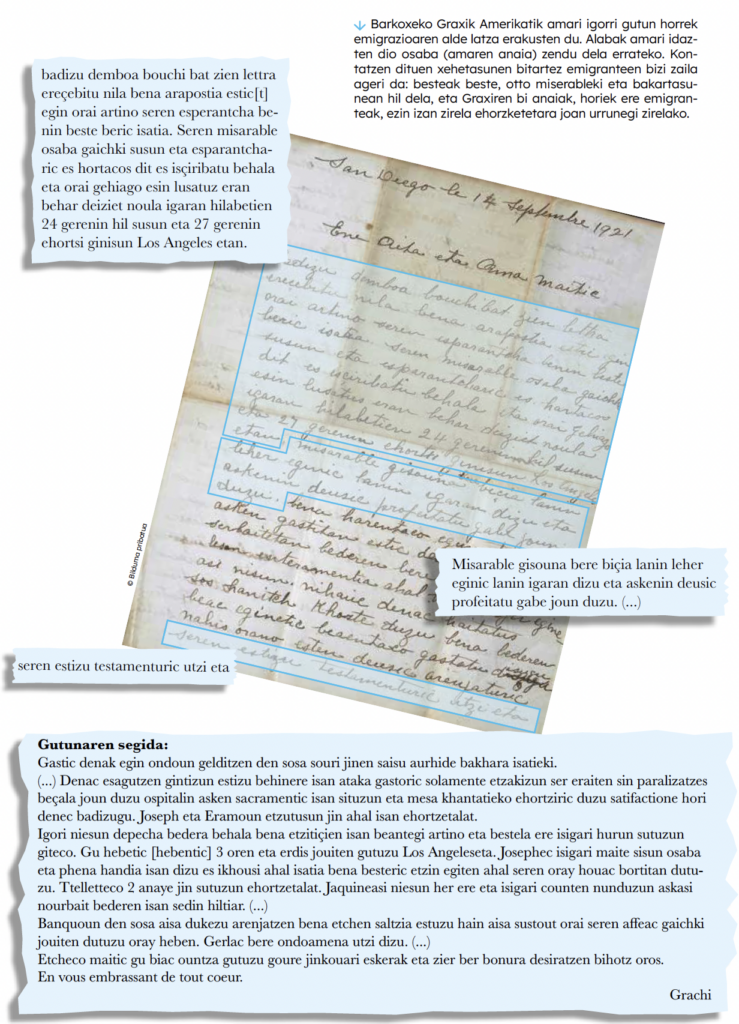 ↓ Barkoxeko Graxik Amerikatik amari igorri gutun horrek
emigrazioaren alde latza erakusten du. Alabak amari idaz-
ten dio osaba (amaren anaia) zendu dela errateko. Kon-
tatzen dituen xehetasunen bitartez emigranteen bizi zaila
ageri da: besteak beste, otto miserableki eta bakartasu-
nean hil dela, eta Graxiren bi anaiak, horiek ere emigran-
teak, ezin izan zirela ehorzketetara joan urrunegi zirelako.
badizu demboa bouchi bat zien lettra
ereçebitu nila bena arapostia estic[t]
egin orai artino seren esperantcha be-
nin beste beric isatia. Seren misarable
osaba gaichki susun eta esparantcha-
ric es hortacos dit es isçiribatu behala
eta orai gehiago esin lusatuz eran
behar deiziet noula igaran hilabetien
24 gerenin hil susun eta 27 gerenin
chortsi ginisun Los Angeles etan.
San Diego le 14 Septembre 1921
Ene Aita eta Ama maitic
badizu demboa bouchi bat zien lettra
erecebitu nila bena arapostia estic egin
orai artino seren isparantcha benin beste
beric isatia. Seren misarable osaba gaichki
susun eta esparantcharic es hortacos
dit es isciribatu behala eta orai gehiago
esin lusatus eran behar deiziet noula
igaran hilabetien 24 gerenin hil susun
eta 27 gerenin chortsi ginisun Los Angeles
etan. Misarable gisouna bere bicia lanin
leher eginic lanin igaran dizu eta
askenin deusic profeitatu gabe joun
duzu. bena
seren estizu testamenturic utzi eta
© Bilduma pribatua
Misarable gisouna bere biçia lanin leher
eginic lanin igaran dizu eta askenin deusic
profeitatu gabe joun duzu. (...)
seren estizu testamenturic utzi eta
Gutunaren segida:
Gastic denak egin ondoun gelditzen den sosa souri jinen saisu aurhide bakhara isatieki.
(...) Denac esagutzen gintizun estizu behinere isan ataka gastoric solamente etzakizun ser eraiten sin paralizatzes
beçala joun duzu ospitalin asken sacramentic isan situzun eta mesa khantatieko ehortziric duzu satifactione hori
denec badizugu. Joseph eta Eramoun etzutusun jin ahal isan ehortzetalat.
Igori niesun depecha bedera behala bena etzitiçien isan beantegi artino eta bestela ere isigari hurun sutuzun
giteco. Gu hebetic [hebentic] 3 oren eta erdis jouiten gutuzu Los Angeleseta. Josephec isigari maite sisun osaba
eta phena handia isan dizu es ikhousi ahal isatia bena besteric etzin egiten ahal seren oray houac bortitan dutu-
zu. Ttelletteco 2 anaye jin sutuzun ehortzetalat. Jaquineasi niesun her ere eta isigari counten nunduzun askasi
nourbait bederen isan sedin hiltiar. (...)
Banquoun den sosa aisa dukezu arenjatzen bena etchen saltzia estuzu hain aisa sustout orai seren affeac gaichki
jouiten dutuzu oray heben. Gerlac bere ondoamena utzi dizu. (...)
Etcheco maitic gu biac ountza gutuzu goure jinkouari eskerak eta zier ber bonura desiratzen bihotz oros.
En vous embrassant de tout coeur.
Grachi